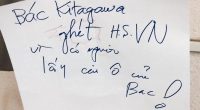 Bác Kitagawa
ghét H.S.VN
vì có người
lấy cái ô của
Bác!